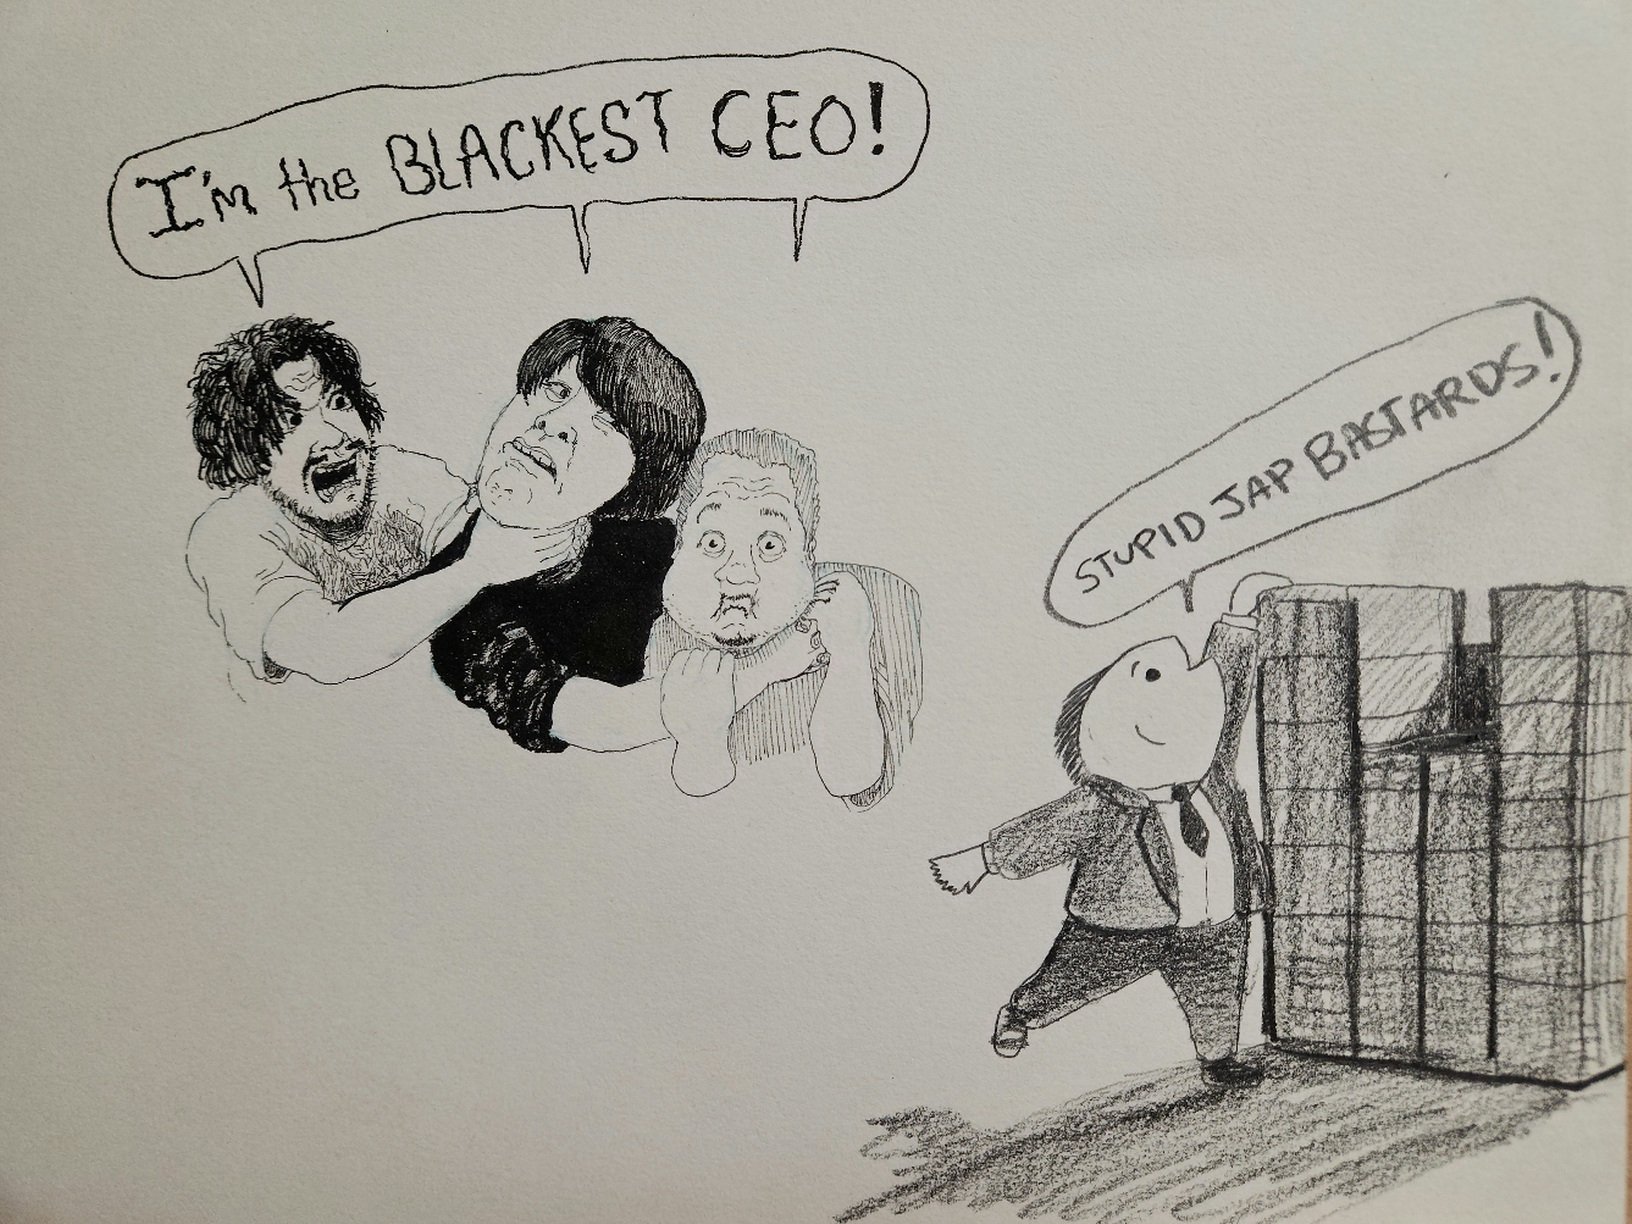 I'm the BLACKEST CEO!
STUPID JAP BASTARDS!